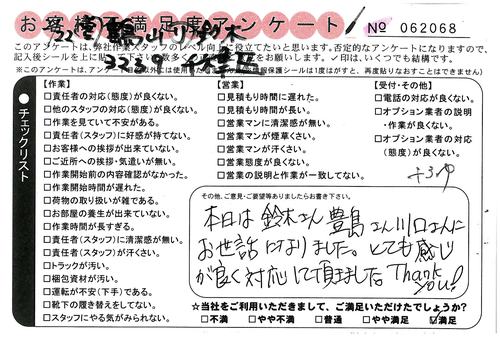 お客様不満足度アンケート
№ 062068
このアンケートは、弊社作業スタッフのレベル向上に役立てたいと思います。否定的なアンケートになりますので、
☑印は、いくつでも結構です。
チェックリスト
【作業】
□責任者の対応(態度)が良くない。
□他のスタッフの対応(態度)が良くない。
□作業を見ていて不安がある。
□責任者(スタッフ)に好感が持てない。
□お客様への挨拶が出来ていない。
□ご近所への挨拶・気遣いが無い。
□作業開始前の内容確認がなかった。
□作業開始時間が遅れた。
□荷物の取り扱いが雑である。
□お部屋の養生が出来ていない。
□作業時間が長すぎる。
□責任者(スタッフ)に清潔感が無い。
□責任者(スタッフ)が汗くさい。
□トラックが汚い。
□梱包資材が汚い。
□運転が不安(下手)である。
□靴下の履き替えをしてない。
□スタッフにやる気がみられない。
【営業】
□見積もり時間に遅れた。
□見積もり時間が長い。
□営業マンに清潔感が無い。
□営業マンが煙草くさい。
□営業マンが汗くさい。
□営業態度が良くない。
□営業の説明と作業が一致してない。
【受付・その他】
□電話の対応が良くない。
□オプション業者の説明
・作業が良くない。
□オプション業者の対応
(態度)が良くない。
その他、ご意見・ご要望等ありましたらお書き下さい。
本日は鈴木さん豊島さん川口さんに
お世話になりました。とても感じ
が良く対応して頂きました。Thank
you!
☆当社をご利用いただきまして、ご満足いただけたでしょうか?
□不満 □やや不満 □普通 □やや満足 ☑満足